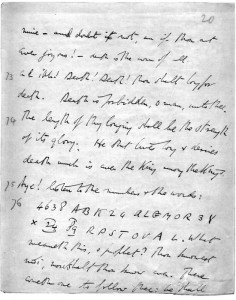 20
mine — and doubt it not, an if thou art
ever joyous! — death is the crown of all
73 Ah! Ah! Death! Death! thou shalt long for
death. Death is forbidden, o man, unto thee.
74 The length of thy longing shall be the strength
of its glory. He that lives long & desires
death much is ever the King among the Kings.
75 Aye! listen to the numbers & the words:
76 4 6 3 8 A B K 2 4 A L G M O R 3 Y
X 24 89 R P S T O V A L. What
meaneth this, o prophet? Thou knowest
not, nor shalt thou know ever. There
cometh one to follow thee: he shall